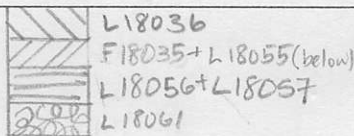 L18036
F18035+L18055(below)
L18056+L18057
L18061